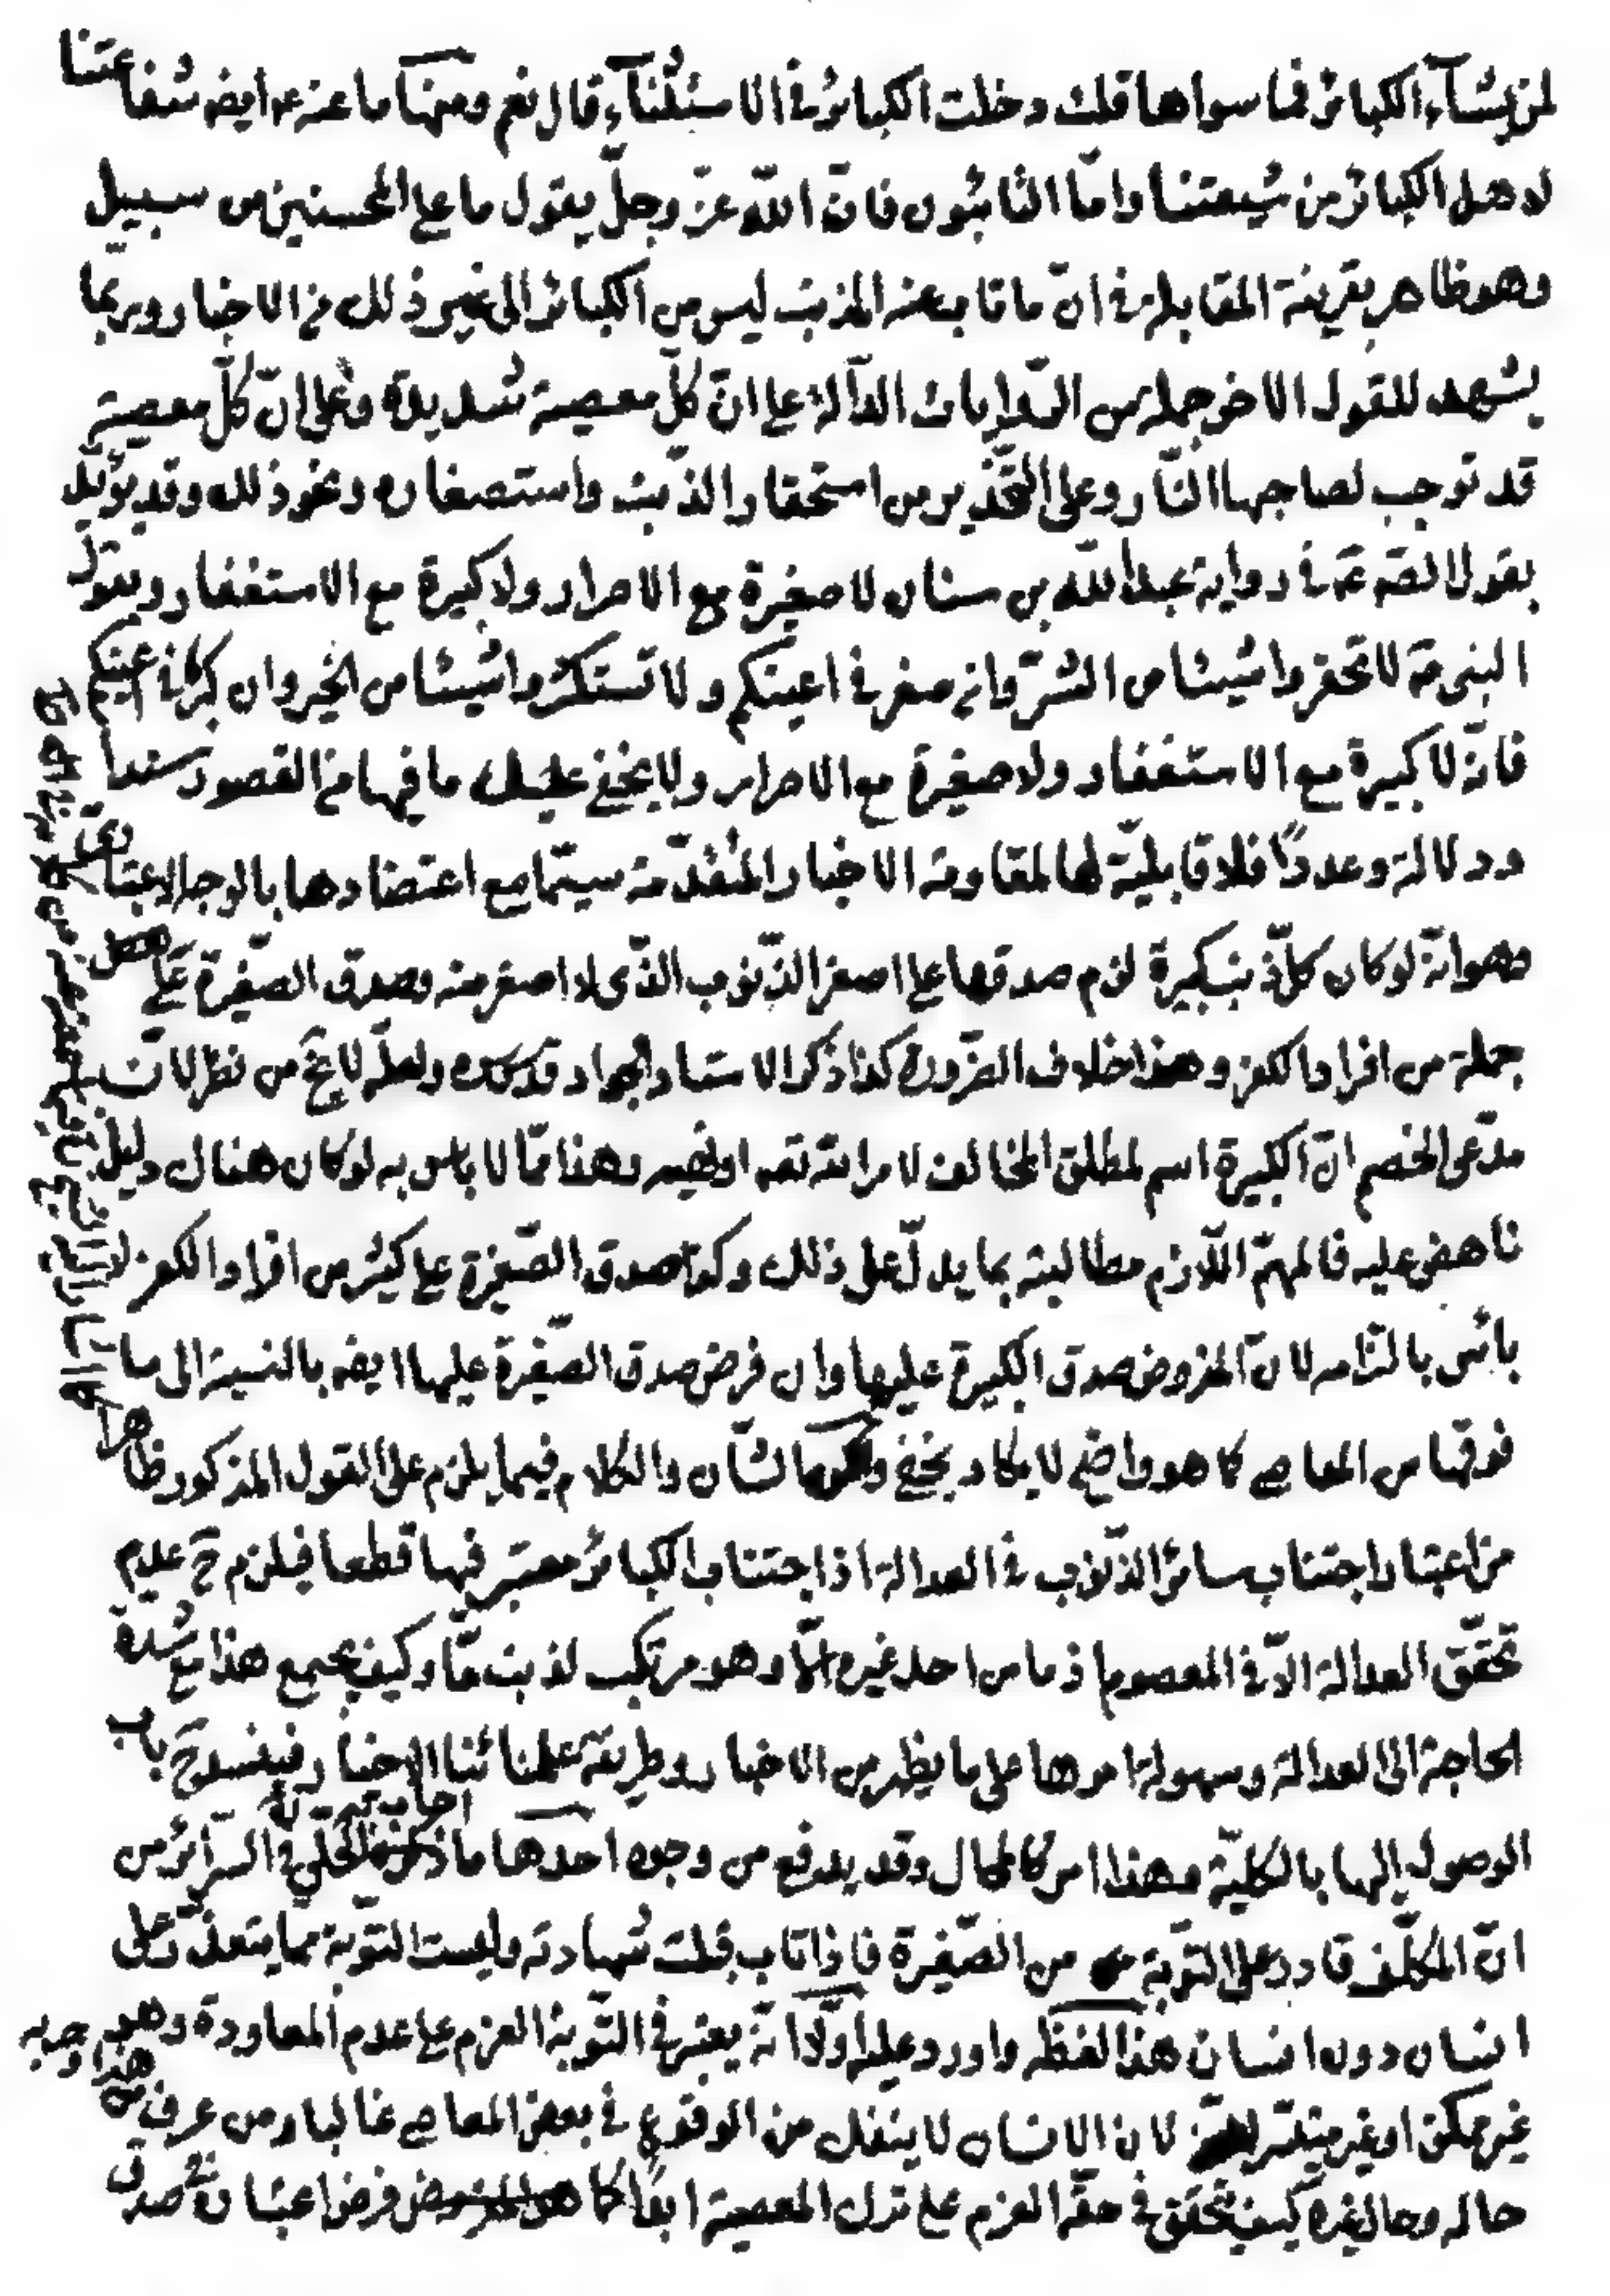 لمن يشاء الكبائر فما سواها قلت دخلت الكبائر في الاستثناء قال نعم ومنها ما عنه ع ايضه شفاعتنا
لاهل الكبائر من شيعتنا وامّا التائبون فانّ اللّه عزّ وجلّ يقول ما على المحسنين من سبيل
وهو ظاهر بقرينة المقابلة في انّ ما تاب عنه المذنب ليس من الكبائر الى غير ذلك من الاخبار وربّما
يشهد للقول الاخر جملة من الرّوايات الدّالة على انّ كلّ معصية شديدة وعلى انّ كلّ معصية
قد توجب لصاحبها النّار وعلى التّحذير من استحقار الذّنب واستصغاره ونحو ذلك وقد يؤيّد
بقول الصّ ع في رواية عبد اللّه بن سنان لا صغيرة مع الاصرار ولا كبيرة مع الاستغفار وبقول
النبى ص لا تحقروا شيئا من الشّرّ وان صغر في اعينكم ولا تستكثروا شيئا من الخير وان كبر في اعينكم
فانّه لا كبيرة مع الاستغفار ولا صغيرة مع الاصرار ولا يخفى عليك ما فيها من القصور سندا
ودلالة وعددًا فلا قابليّة لها لمقاومة الاخبار المتقدّمة سيّما مع اعتضادها بالوجه الاعتبارى
وهو انّه لو كان كلّ ذنب كبيرة لزم صدقها على اصغر الذّنوب الذّى لا اصغر منه وصدق الصّغيرة على
جملة من افراد الكفر وهذا خلاف الضّرورة كذا ذكر الاستاد الجواد قدّسره ولعلّه لا يخ من نظر لانّ
مدّعى الخصم انّ الكبيرة اسم لمطلق المخالفة لامر اللّه تعه او نهيه وهذا ممّا لا باس به لو كان هناك دليل
ناهض عليه فالمهمّ اللّازم مطالبته بما يدلّ على ذلك وكذا صدق الصّغيرة على كثير من افراد الكفر لا
بائس بالتزامه لانّ المفروض صدق الكبيرة عليها وان فرض صدق الصّغيرة عليها ايضه بالنسبة الى ما
فوقها من المعاصى كما هو واضح لا يكاد يخفى وانما الشّان والكلام فيما يلزم على القول المذكور ظاهرا
من اعتبار اجتناب سائر الذّنوب في العدالة اذ اجتناب الكبائر معتبر فيها قطعا فيلزم ح عدم
تحقّق العدالة الاّ في المعصوم اذ ما من احد غيره الّا وهو مرتكب لذنب مّا وكيف يجمع هذا مع شدة
الحاجة الى العدالة وسهولة امرها على ما يظهر من الاخبار وطريقة علمائنا الاخيار فينسدّ ح باب
الوصول اليها بالكليّة وهذا امر كالمحال وقد يدفع من وجوه احدها ما اجاب به الحلّى في السّرائر من
انّ المكلّف قادر على التّوبة من الصّغيرة فاذا تاب قبلت شهادته وليست التّوبة ممّا يتعذّر على
انسان دون انسان هذا لفظه واورد عليه اوّلا انّه يعتبر في التّوبة العزم على عدم المعاودة وهو
غير ممكن او غير متيسّر لان الانسان لا ينفك من الوقوع في بعض المعاصى غالبا ومن عرف من هذا وجربه
حاله وحال غيره كيف يتحقق في حقّه العزم على ترك المعصية ابدًا كما هو المفروض فرض اعتبار في صدق